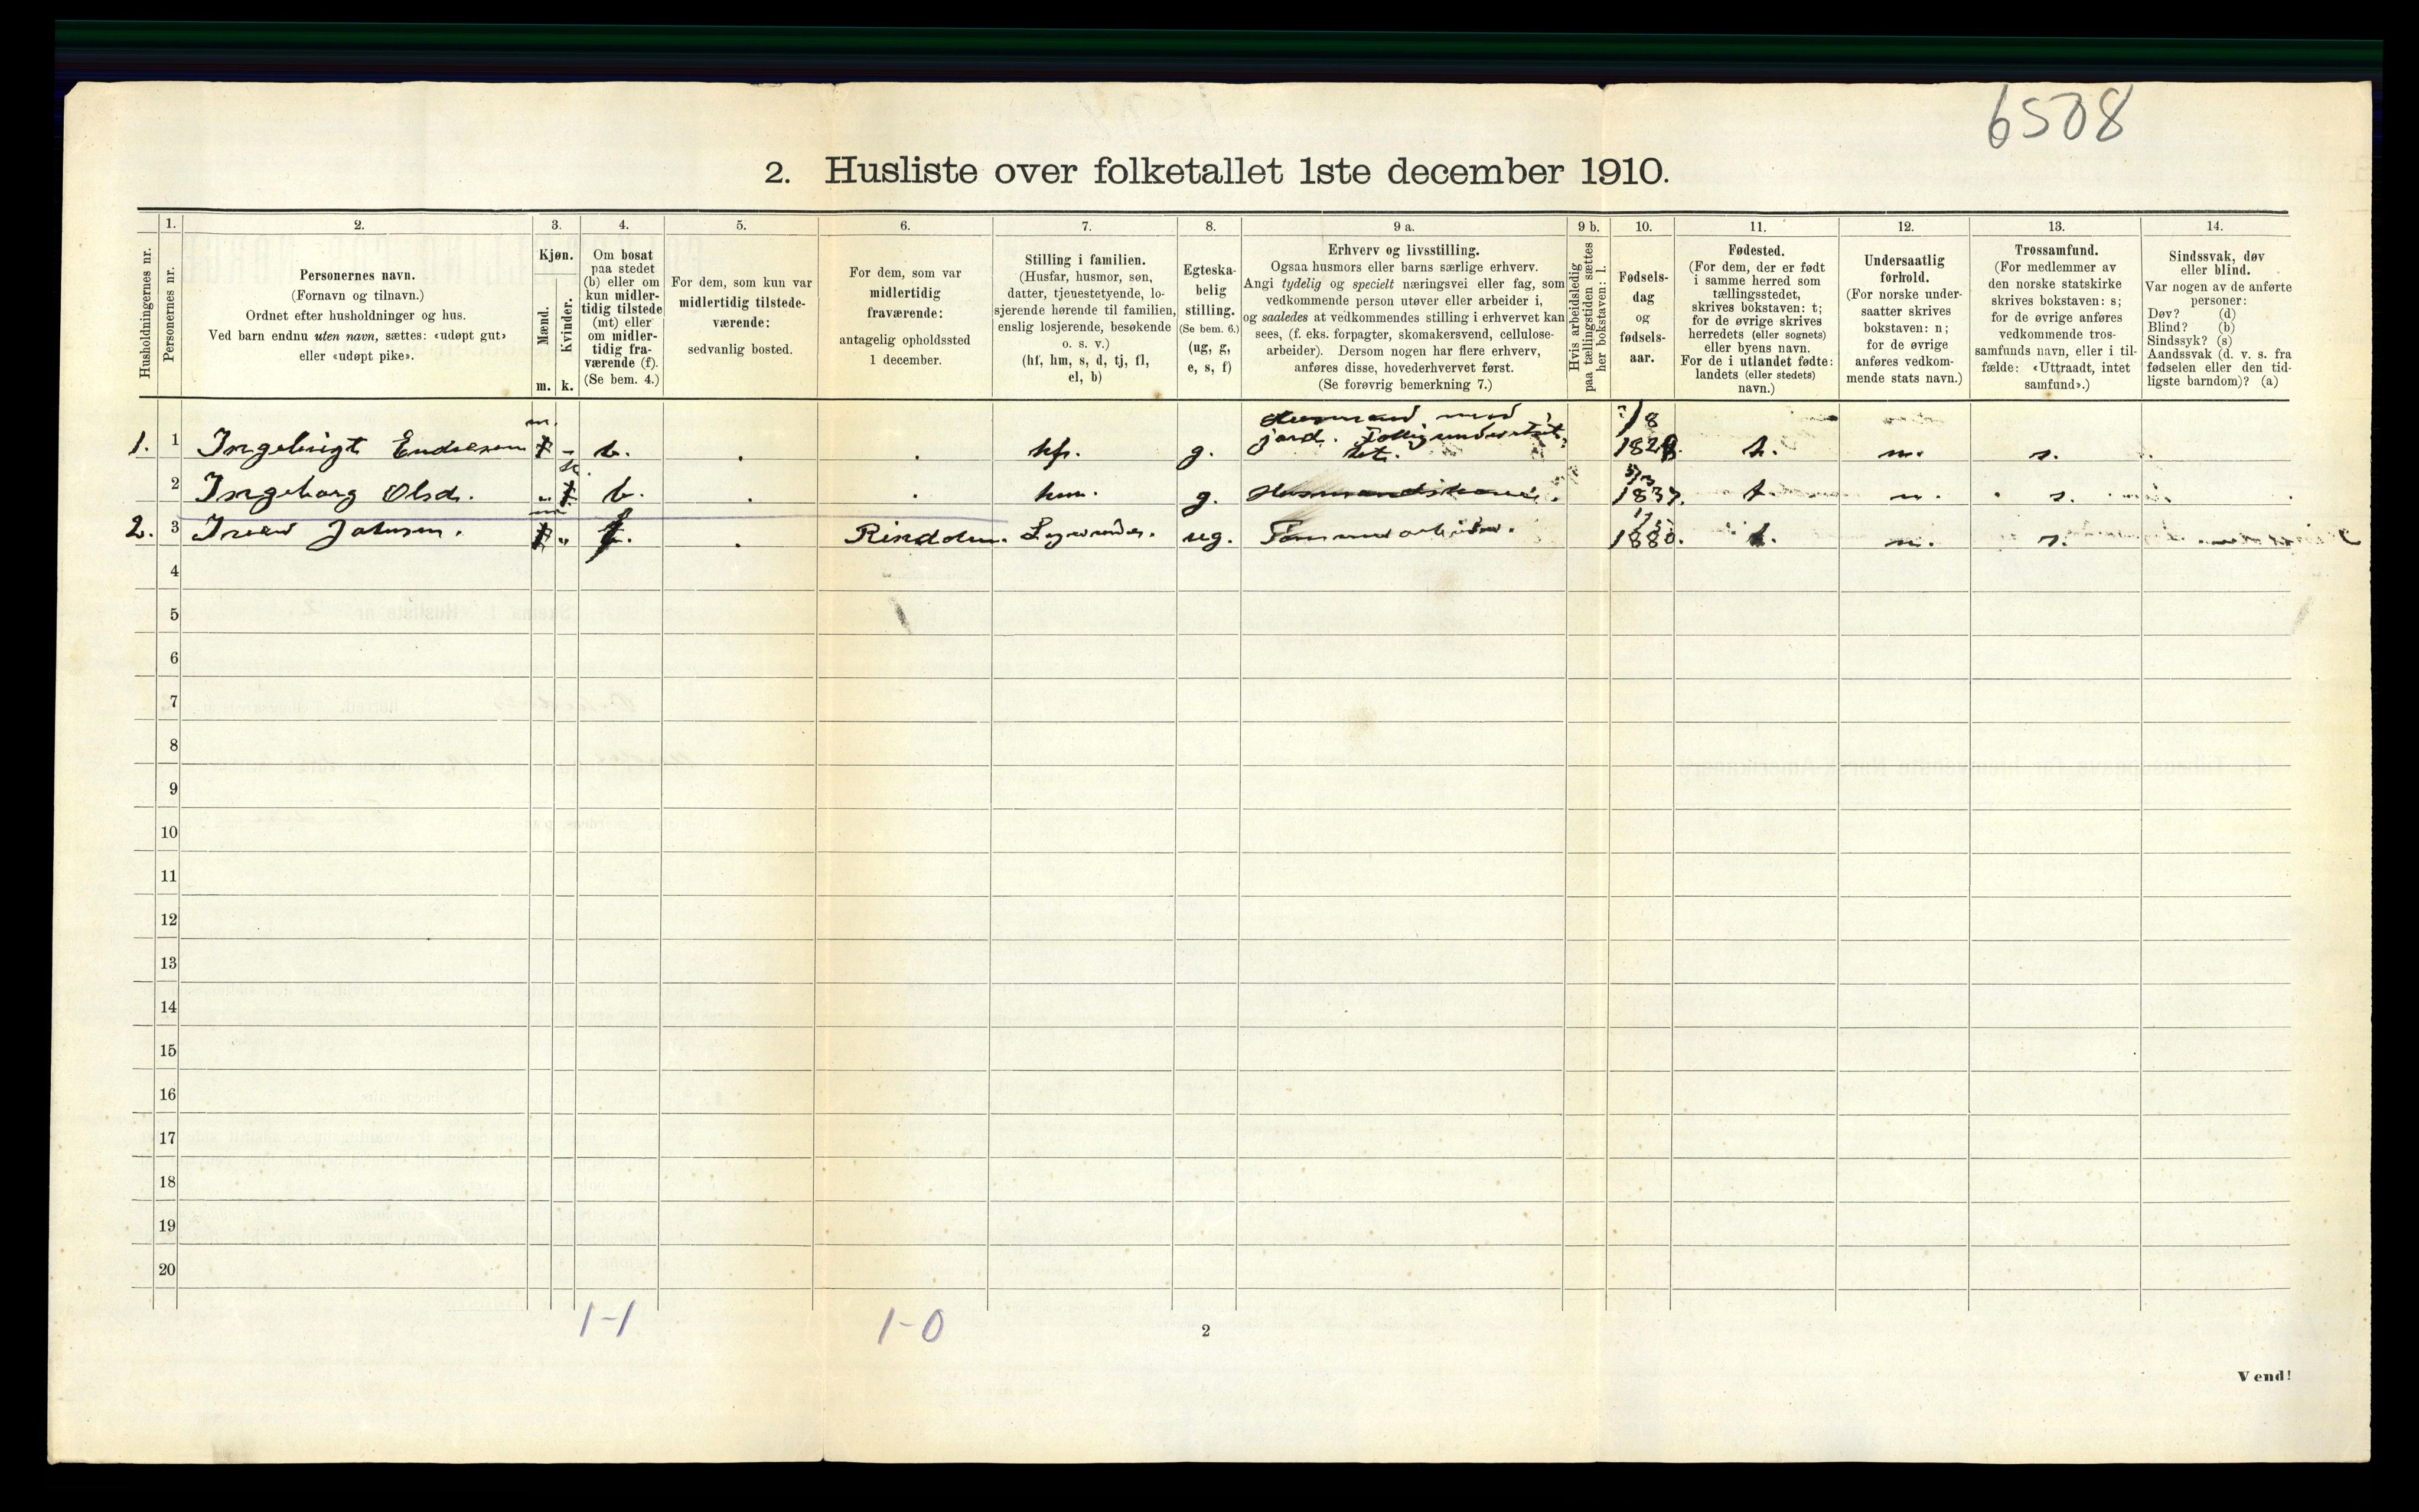 6508
2. Husliste over folketallet 1ste december 1910.
Husholdningernes nr.
1.
Personernes nr.
2.
Personernes navn.
(Fornavn og tilnavn.)
Ordnet efter husholdninger og hus.
Ved barn endnu uten navn, sættes: «udøpt gut»
eller «udøpt pike».
3.
Kjøn.
Mænd.
m.
Kvinder.
k.
4.
Om bosat
paa stedet
(b) eller om
kun midler-
tidig tilstede
(mt) eller
om midler-
tidig fra-
værende (f).
(Se bem. 4.)
5.
For dem, som kun var
midlertidig tilstede-
værende:
sedvanlig bosted.
6.
For dem, som var
midlertidig
fraværende:
antagelig opholdssted
1 december.
7.
Stilling i familien.
(Husfar, husmor, søn,
datter, tjenestetyende, lo-
sjerende hørende til familien,
enslig losjerende, besøkende
o. s. v.)
(hf, hm, s, d, tj, fl,
el, b)
8.
Egteska-
belig
stilling.
(Se bem. 6.)
(ug, g,
e, s, f)
9 a.
Erhverv og livsstilling.
Ogsaa husmors eller barns særlige erhverv.
Angi tydelig og specielt næringsvei eller fag, som
vedkommende person utøver eller arbeider i,
og saaledes at vedkommendes stilling i erhvervet kan
sees, (f. eks. forpagter, skomakersvend, cellulose-
arbeider). Dersom nogen har flere erhverv,
anføres disse, hovederhvervet først.
(Se forøvrig bemerkning 7.)
9 b.
Hvis arbeidsledig
paa tællingstiden sættes
her bokstaven: l.
10.
Fødsels-
dag
og
fødsels-
aar.
11.
Fødested.
(For dem, der er født
i samme herred som
tællingsstedet,
skrives bokstaven: t;
for de øvrige skrives
herredets (eller sognets)
eller byens navn.
For de i utlandet fødte:
landets (eller stedets)
navn.)
12.
Undersaatlig
forhold.
(For norske under-
saatter skrives
bokstaven: n;
for de øvrige
anføres vedkom-
mende stats navn.)
13.
Trossamfund.
(For medlemmer av
den norske statskirke
skrives bokstaven: s;
for de øvrige anføres
vedkommende tros-
samfunds navn, eller i til-
fælde: «Uttraadt, intet
samfund».)
14.
Sindssvak, døv
eller blind.
Var nogen av de anførte
personer:
Døv? (d)
Blind? (b)
Sindssyk? (s)
Aandssvak (d. v. s. fra
fødselen eller den tid-
ligste barndom)? (a)
1. 1 Ingebrigt Endresen m. b. hf. g. Husmand med jord. t. n. s.
2 Ingeborg Olsd. k. b. hm. g. Husmandskone. 1837. t. n. s.
2. 3 Johnsen. m f Rinddlm. ug. 1880. t. n. s.
4
5
6
7
8
9
10
11
12
13
14
15
16
17
18
19
20
1-1
1-0
2
Vend!